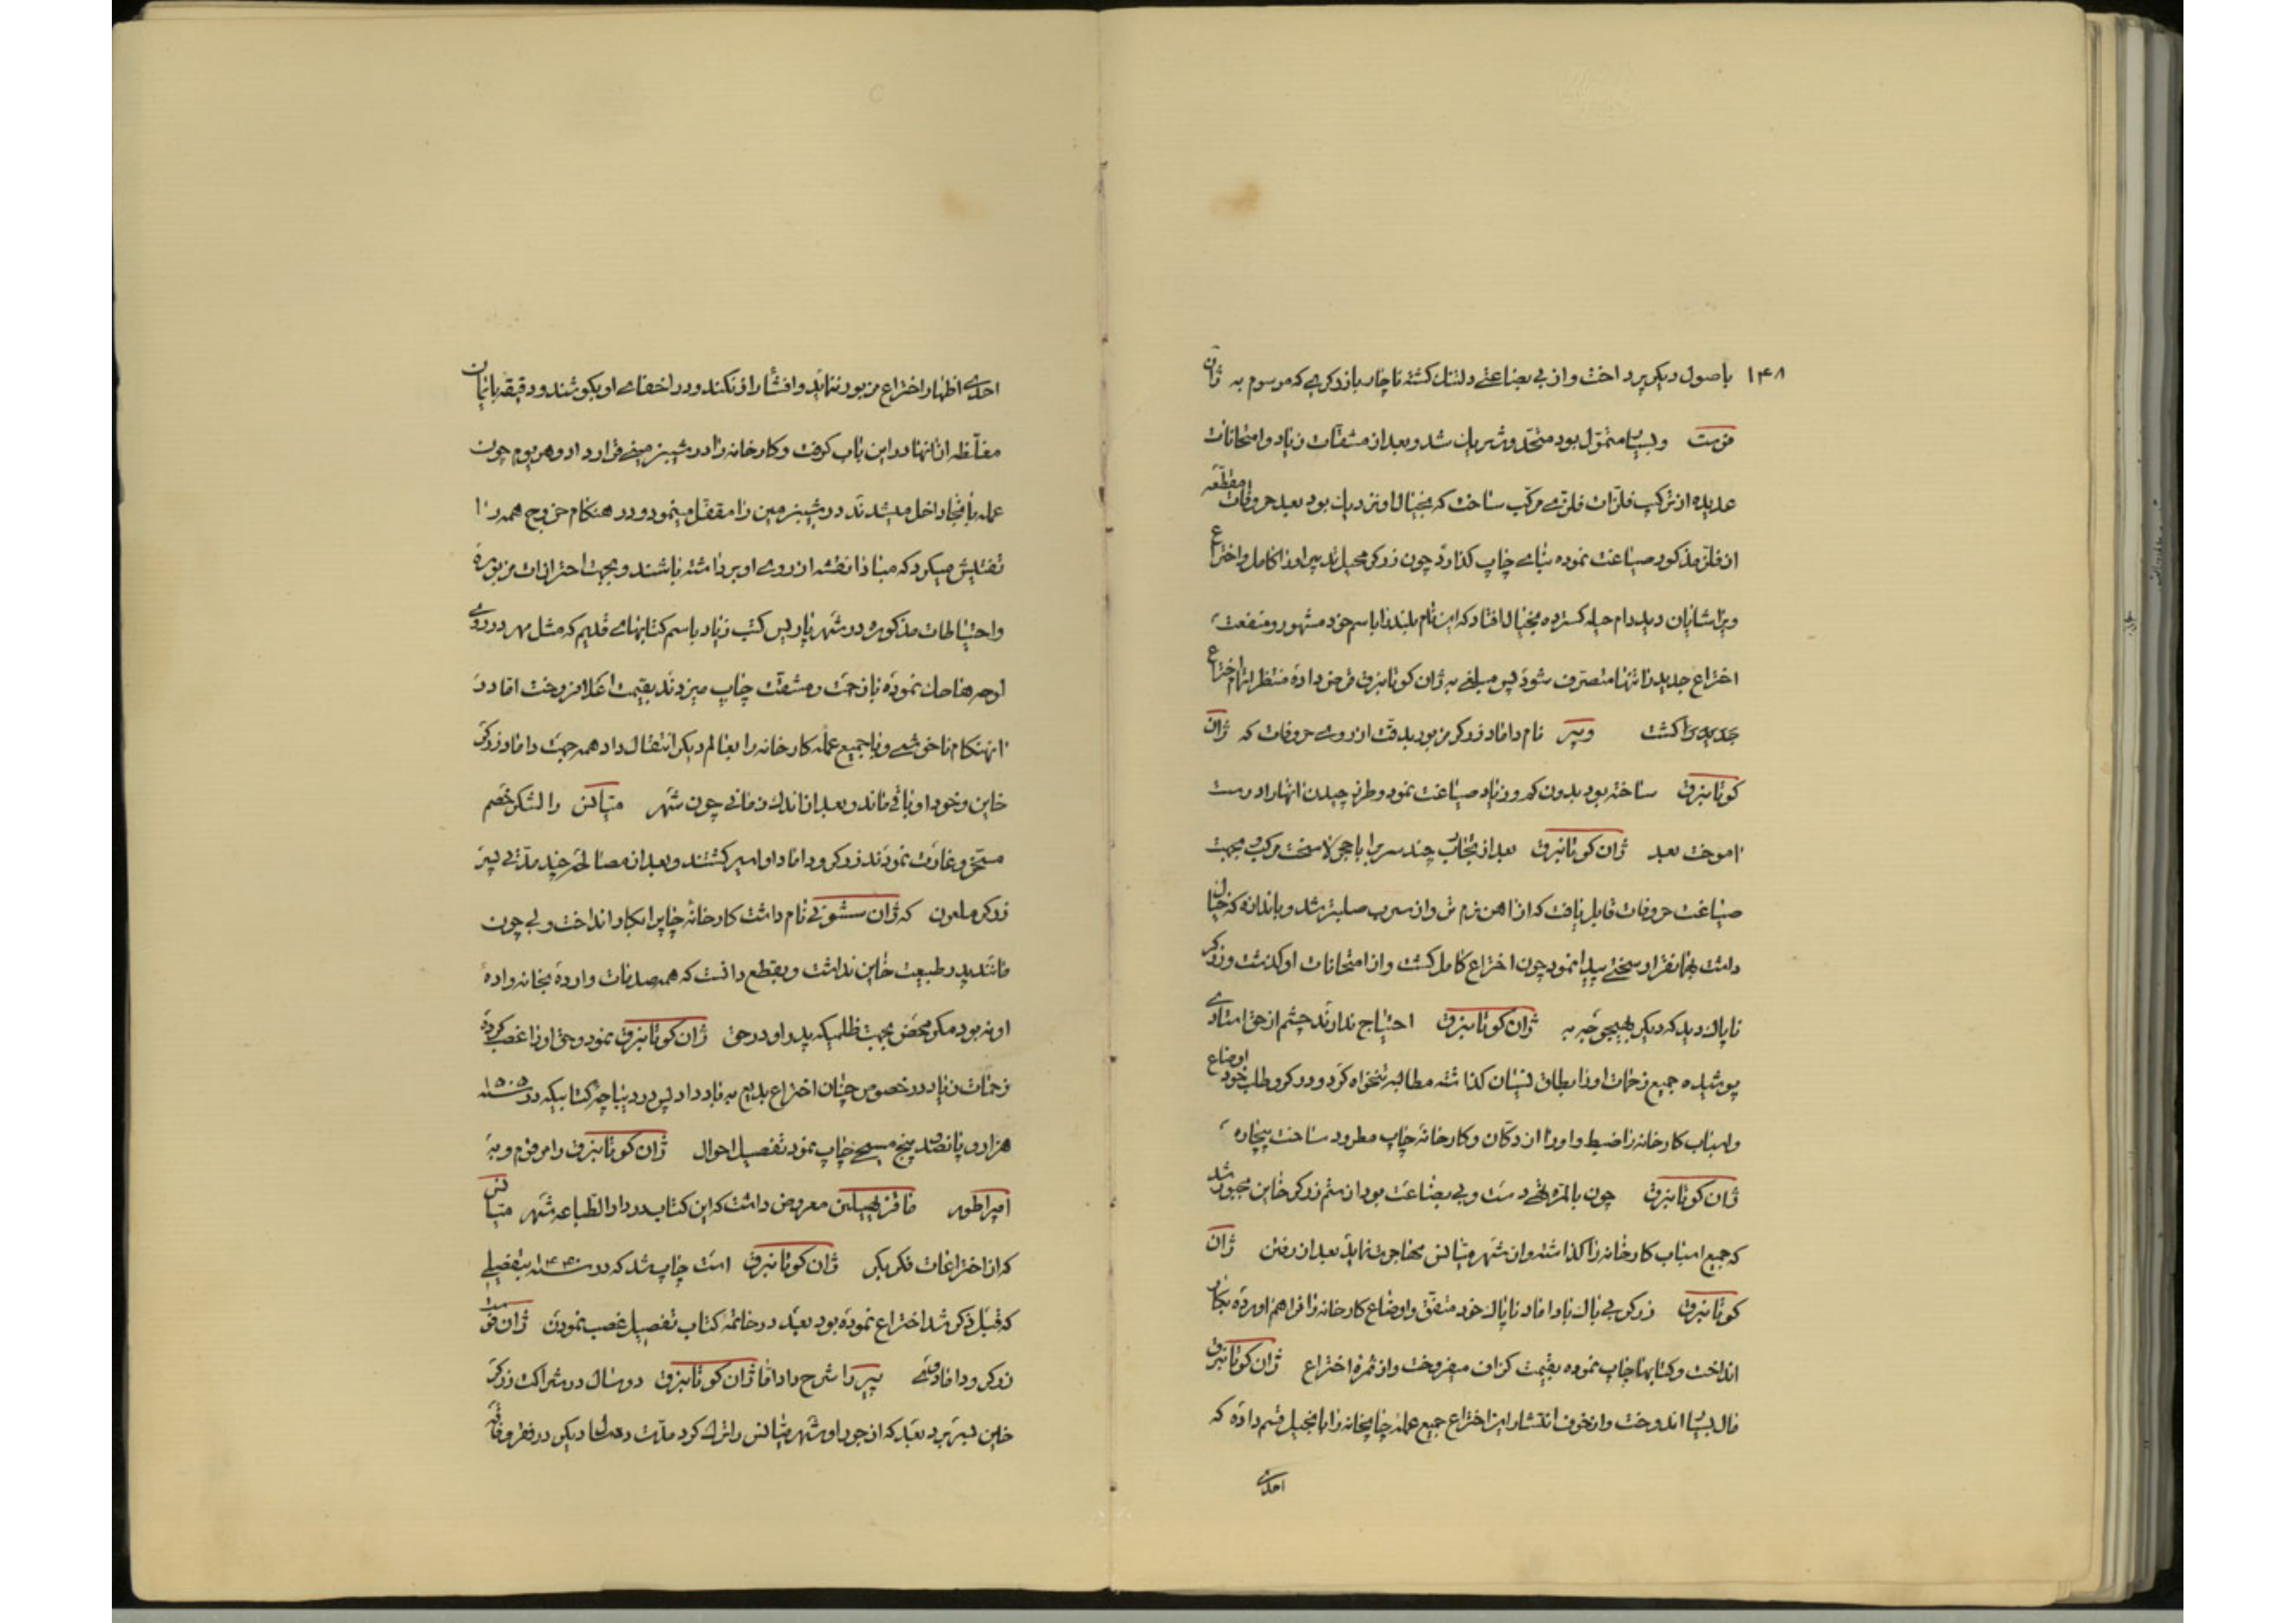 ۱۴۸ باصول دیکر پرداخت و از بی بضاعتی دلتنك کشته ناچار بازرکری که موسوم به ژان
فوست و بسیار متموّل بود متحد و شریك شد و بعد از مشقّات زیاد و امتحانات
عدیده از ترکیب فلزّات فلزّی مرکّب ساخت که بخیال او نزدیك بود بعد حروفات مقطّعه
از فلز مذکور صیاغت نموده بنای چاپ کذارد چون زرکر محیل تدبیر او را کامل و اختراع
ویرا شایان دید دام حیله کسترده بخیال افتاد که این نام بلند را باسم خود مشهور و منفعت
اختراع جدید را تنها متصرّف شود پس مبلغی به ژان کوتانبرق قرض داده منتظر اتمام اختراع
جدیدی کشت و پیر نام داماد زرکر مزبور بدقت از روی حروفات که ژان
کوتانبرق ساخته بود بدون کم و زیاد صیاغت نمود و طرز چیدن انها را درست
اموخت بعد ژان کوتانبرق بعد از تجارب چند سرب را با سخت مرکب بجهت
صیاغت حروفات قابل یافت که از اهن نرم تر و از سرب صلبتر شد و باندازه که خیال
داشت بهمانقرار سختی پیدا نمود چون اختراع کامل کشت و از امتحانات او کذشت و زرکر
ناپاك دید که دیکر بهیچوجه به ژان کوتانبرق احتیاج ندارند چشم از حق استادی
پوشیده جمیع زحمات او را بطاق نسیان کذاشته مطالبه تنخواه کرد و در کرو طلب خود اوضاع
و اسباب کارخانه را ضبط و او را از دکان و کارخانهٔ چاپ مطرود ساخت بیچاره
ژان کوتانبرق چون بالمرّه تهی دست و بی بضاعت بود از ستم زرکر خاین مجبور شد
که جمیع اسباب کارخانه را کذاشته و از شهر میانس مهاجرت نماید بعد از رفتن ژان
کوتانبرق زرکر بی باك با داماد ناپاك خود متفّق و اوضاع کارخانه را فراهم اورده بکار
انداخت و کتابها چاپ نموده بقیمت کزاف میفروخت و از ثمره اختراع ژان کوتانبرق
مال بسیار اندوخت و از خوف انتشار این اختراع جمیع عملهٔ چاپخانه را بانجیل قسم داده که
احدی
احدی اظهار اختراع مزبور ننماید و افشأ راز نکنند و در اخفای او بکوشند و دقیقه بایمان
مغلّظه از انها در این باب کرفت و کارخانه را در شیب زمینی قرار داد و هر یوم چون
عمله بانجا داخل میشدند در شیب زمین را مقفّل مینمود و در هنکام خروج همه را
تفتیش میکرد که مبادا نقشه از روی او برداشته باشند و بجهت احترازات مزبوره
و احتیاطات مذکوره در شهر پاریس کتب زیاد باسم کتابهای قدیم که مثل مهر در روی
لوحها حك نموده با زحمت و مشقّت چاپ میزدند بقیمت اعلا فروخت امّا در
انهنکام ناخوشی وبا جمیع عملهٔ کارخانه را بعالم دیکر انتقال داد همه جهت داماد زرکر
خاین و خود او باقی ماند و بعد از اندك زمانی چون شهر میانس را لشکر خصم
مسخّر و غارت نمودند زرکر و داماد او اسیر کشتند و بعد از مصالحه چند مدّتی پسر
زرکر ملعون که ژان ششوفر نام داشت کارخانهٔ چاپ را بکار انداخت ولی چون
مانند پدر طبیعت خاین نداشت و بقطع دانست که همه صدمات وارده بخانواده
او نبود مکر محض بجهت ظلمیکه پدر او در حق ژان کوتانبرق نمود و حق او را غصب کرده
زحمات زیاد در خصوص چنان اختراع بدیع به باد داد پس در دیباچهٔ کتابیکه در سنه ۱۵۰۵
هزار و پانصد و پنج مسیحی چاپ نمود تفصیل احوال ژان کوتانبرق را مرقوم و به
امپراطور ماقزیمیلین معروض داشت که این کتاب در دار الطباعه شهر میانس
که از اختراعات فکر بکر ژان کوتانبرق است چاپ شد که در سنه ۱۴۴۰ بتفصیلی
که قبل ذکر شد اختراع نموده بود بعد در خاتمه کتاب تفصیل غصب نمودن ژان فوست
زرکر و داماد وی پیر را شرح داد امّا ژان کوتانبرق دو سال در شراکت زرکر
خاین بسر برد بعد که از جور او شهر میانس را ترك کرد مدّت ده سال دیکر در فقر و فاقه